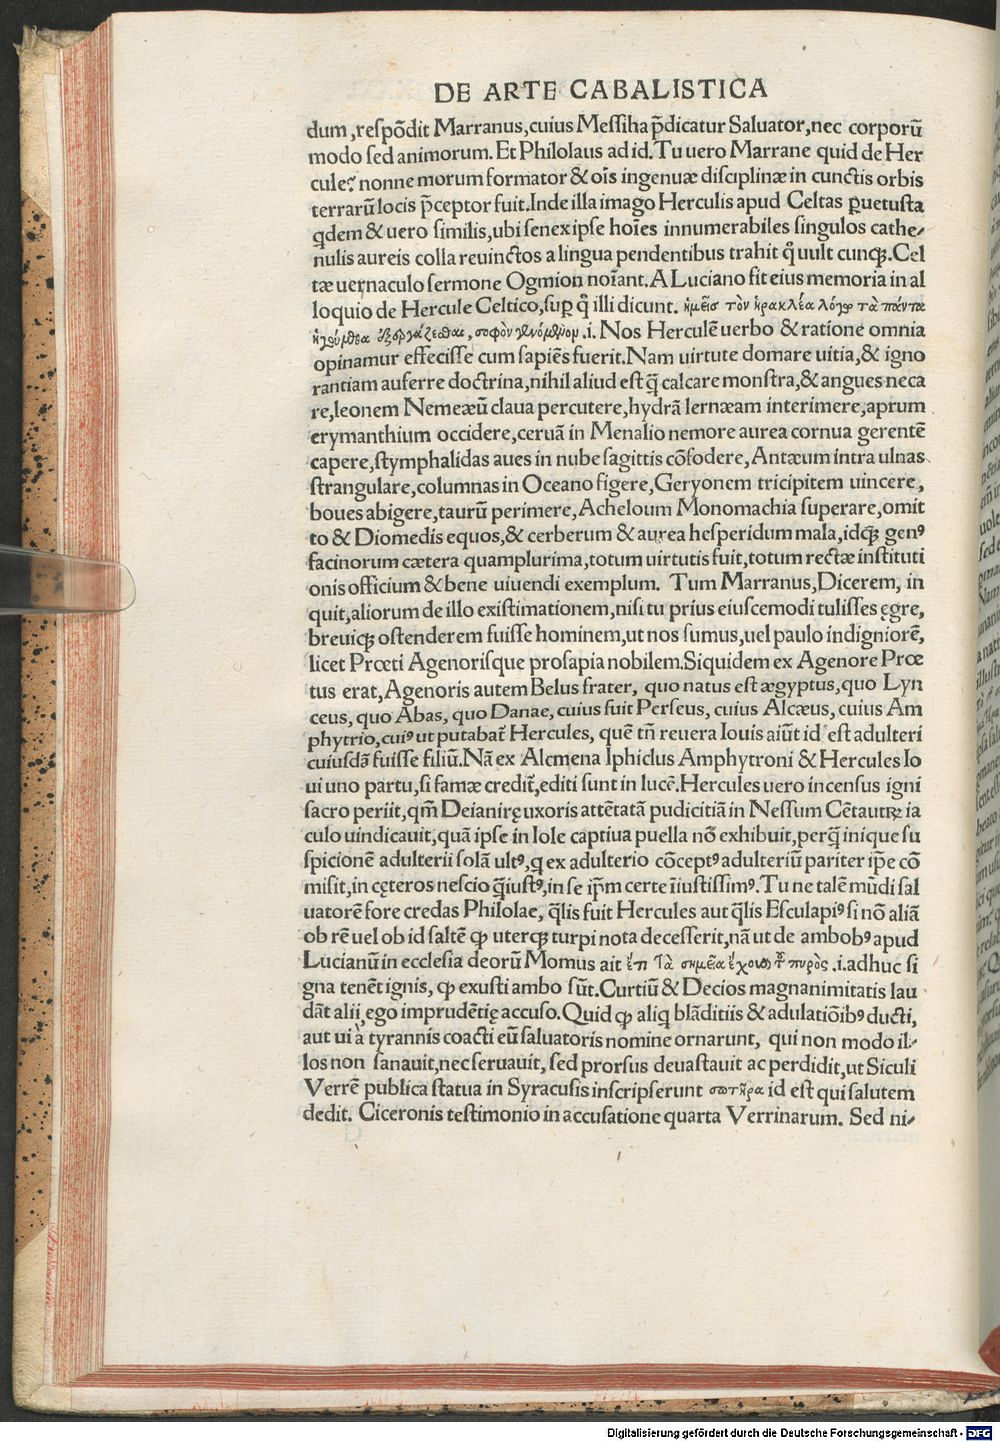 DE ARTE CABALISTICA
dum,respõdit Marranus,cuius Messiha p̃dicatur Saluator,nec corporũ
modo sed animorum. Et Philolaus ad id. Tu uero Marrane quid de Her
cule? nonne morum formator & oĩs ingenuæ disciplinæ in cunctis orbis
terrarũ locis p̃ceptor fuit.Inde illa imago Herculis apud Celtas ꝑuetusta
qdem & uero similis,ubi senex ipse hoĩes innumerabiles singulos cathe⸗
nulis aureis colla reuinctos a lingua pendentibus trahit q̃ uult cunqꝫ.Cel
tæ uernaculo sermone Ogmion noĩant.A Luciano fit eius memoria in al
loquio de Hercule Celtico,suꝑ q̃ illi dicunt. ἡμεῖσ τὸν ἡρακλέα λόγῳ τὰ πάντα
ἡγούμεθα ἐξεργάζεσθαι, σοφὸν γενόμενον .i. Nos Herculẽ uerbo & ratione omnia
opinamur effecisse cum sapiẽs fuerit.Nam uirtute domare uitia,& igno
rantiam auferre doctrina,nihil aliud est q̃ calcare monstra,& angues neca
re,leonem Nemeæũ claua percutere,hydrã lernæam interimere,aprum
erymanthium occidere,ceruã in Menalio nemore aurea cornua gerentẽ
capere,stymphalidas aues in nube sagittis cõfodere,Antæum intra ulnas
strangulare,columnas in Oceano figere,Geryonem tricipitem uincere,
boues abigere,taurũ perimere,Acheloum Monomachia superare,omit
to & Diomedis equos,& cerberum & aurea hesperidum mala,idqꝫ genꝰ
facinorum cætera quamplurima,totum uirtutis fuit,totum rectæ instituti
onis officium & bene uiuendi exemplum. Tum Marranus,Dicerem, in
quit,aliorum de illo existimationem,nisi tu prius eiuscemodi tulisses ęgre,
breuiqꝫ ostenderem fuisse hominem,ut nos sumus,uel paulo indigniorẽ,
licet Prœti Agenorisque prosapia nobilem.Siquidem ex Agenore Prœ
tus erat,Agenoris autem Belus frater, quo natus est ægyptus,quo Lyn
ceus, quo Abas, quo Danae, cuius fuit Perseus, cuius Alcæus, cuius Am
phytrio,cuiꝰ ut putabat̃ Hercules, quẽ tñ reuera Iouis aiũt id est adulteri
cuiusdã fuisse filiũ.Nã ex Alcmena Iphiclus Amphytroni & Hercules Io
ui uno partu,si famæ credit̃,editi sunt in lucẽ.Hercules uero incensus igni
sacro periit,qm̃ Deianirę uxoris attẽtatã pudicitiã in Nessum Cẽtauꝝ ia
culo uindicauit,quã ipse in Iole captiua puella nõ exhibuit,perq̃ inique su
spicionẽ adulterii solã ultꝰ,q ex adulterio cõceptꝰ adulteriũ pariter ip̃e cõ
misit,in cęteros nescio q̃ iustꝰ,in se ip̃m certe ĩiustissimꝰ.Tu ne talẽ mũdi sal
uatorẽ fore credas Philolae, q̃lis fuit Hercules aut q̃lis Esculapiꝰ si nõ aliã
ob rẽ uel ob id saltẽ ꝙ uterqꝫ turpi nota decesserit,nã ut de ambobꝰ apud
Lucianũ in ecclesia deorũ Momus ait ἔτι τὰ σημεῖα ἔχουσι τοῦ πυρὸς .i.adhuc si
gna tenẽt ignis, ꝙ exusti ambo sũt.Curtiũ & Decios magnanimitatis lau
dãt alii,ego imprudẽtię accuso.Quid ꝙ aliq blãditiis & adulatiõibꝰ ducti,
aut ui à tyrannis coacti eũ saluatoris nomine ornarunt, qui non modo il⸗
los non sanauit,nec seruauit, sed prorsus deuastauit ac perdidit,ut Siculi
Verrẽ publica statua in Syracusis inscripserunt σωτῆρα id est qui salutem
dedit. Ciceronis testimonio in accusatione quarta Verrinarum. Sed ni⸗
Digitalisierung gefördert durch die Deutsche Forschungsgemeinschaft - DFG